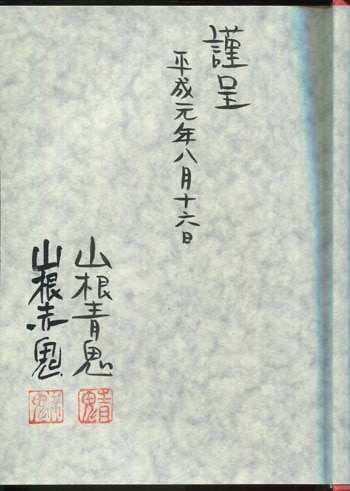 謹呈
平成元年八月十六日
山根青鬼
山根赤鬼
青鬼
赤鬼